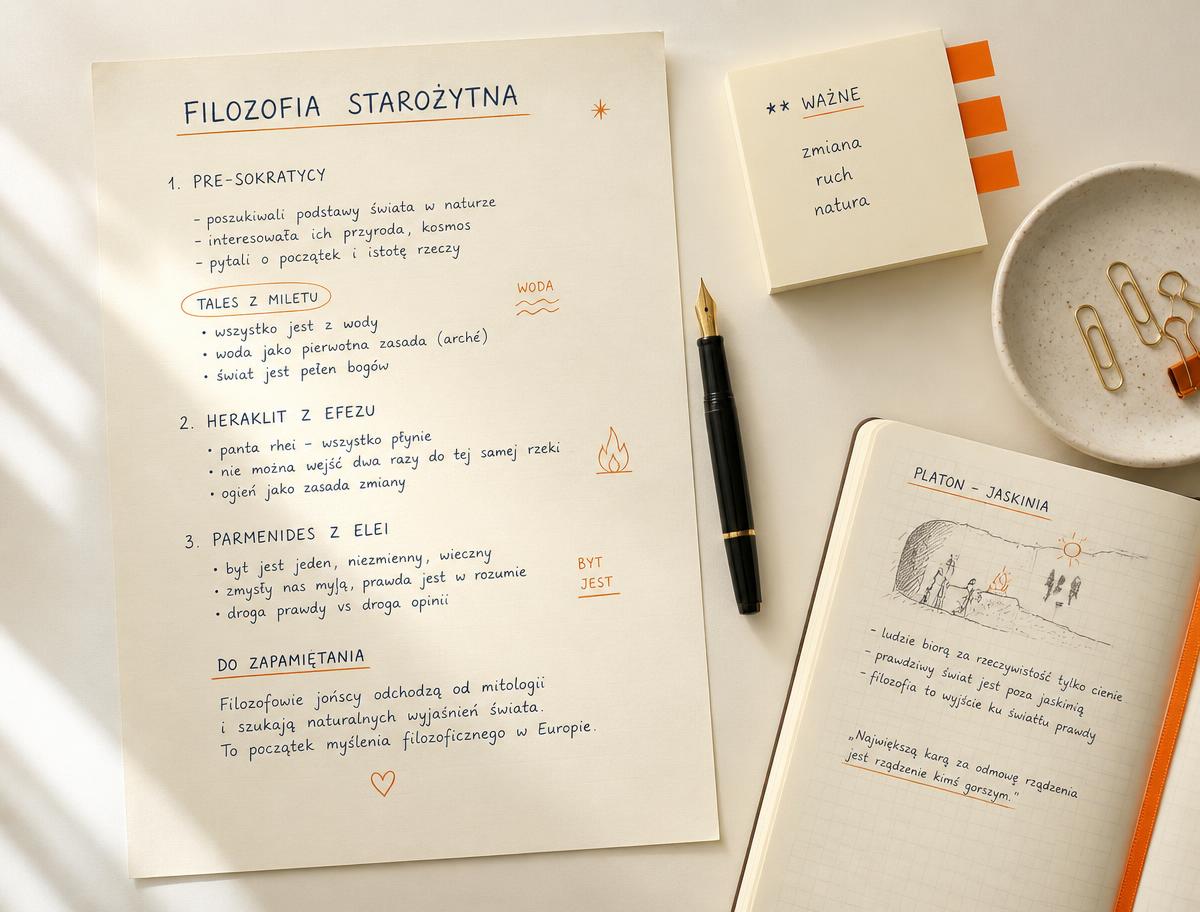 FILOZOFIA STAROŻYTNA
1. PRE-SOKRATYCY
- poszukiwali podstawy świata w naturze
- interesowała ich przyroda, kosmos
- pytali o początek i istotę rzeczy
TALES Z MILETU
WODA
• wszystko jest z wody
• woda jako pierwotna zasada (arché)
• świat jest pełen bogów
2. HERAKLIT Z EFEZU
• panta rhei – wszystko płynie
• nie można wejść dwa razy do tej samej rzeki
• ogień jako zasada zmiany
3. PARMENIDES Z ELEI
• byt jest jeden, niezmienny, wieczny
• zmysły nas mylą, prawda jest w rozumie
• droga prawdy vs droga opinii
BYT
JEST
DO ZAPAMIĘTANIA
Filozofowie jońscy odchodzą od mitologii
i szukają naturalnych wyjaśnień świata.
To początek myślenia filozoficznego w Europie.
** WAŻNE
zmiana
ruch
natura
PLATON – JASKINIA
- ludzie biorą za rzeczywistość tylko cienie
- prawdziwy świat jest poza jaskinią
- filozofia to wyjście ku światłu prawdy
„Największą karą za odmowę rządzenia
jest rządzenie kimś gorszym."